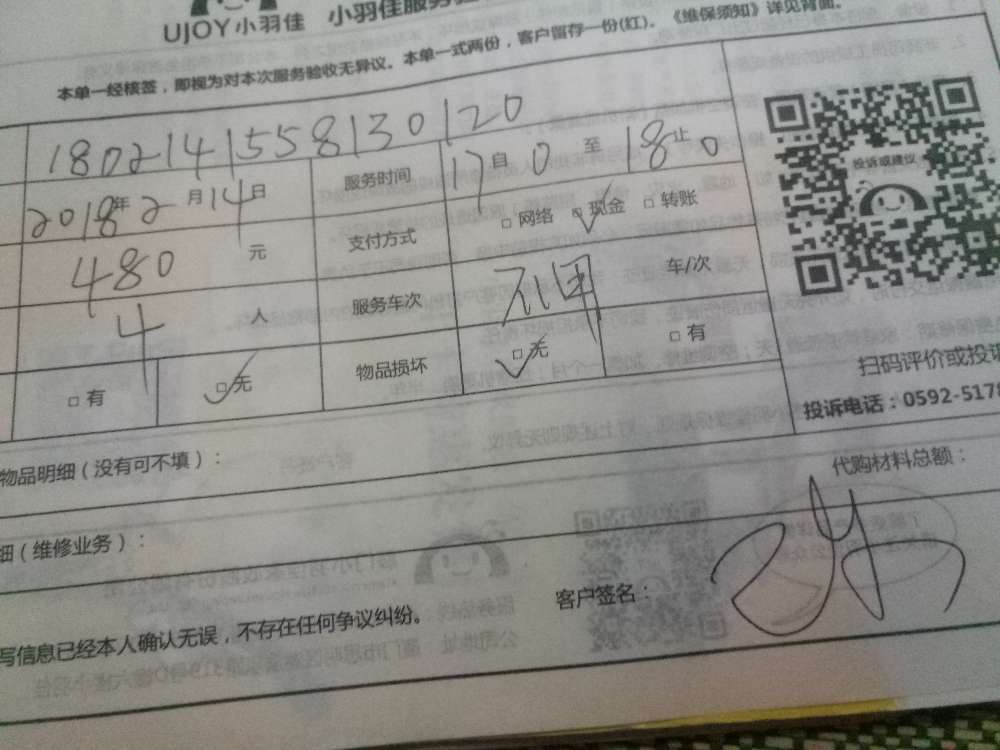 UJOY小羽佳 小羽佳服务
本单一经核签，即视为对本次服务验收无异议。本单一式两份，客户留存一份(红)。《维保须知》详见背面。
180214155813​0120
2018年2月14日 服务时间 17自0至18止0
投诉或建议
480元 支付方式 □网络 □现金 □转账
4人 服务车次 车/次
□有 □无 物品损坏 □无 □有
扫码评价或投诉
投诉电话：0592-5178
物品明细（没有可不填）：
代购材料总额：
细（维修业务）：
客户签名：
写信息已经本人确认无误，不存在任何争议纠纷。